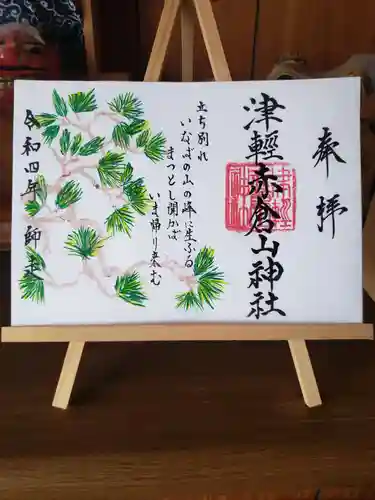 奉拝
津輕赤倉山神社
立ち別れ
いなばの山の峰に生ふる
まつとし聞かば
いま帰り来む
令和四年 師走